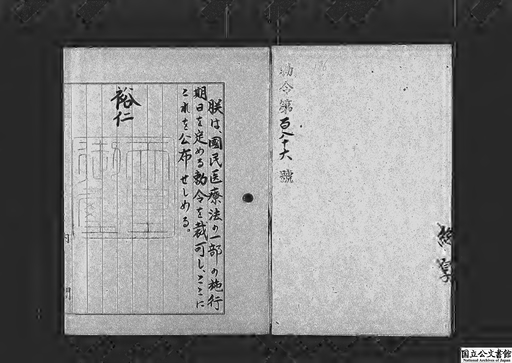 勅令第百八十六號
朕は、國民医療法の一部の施行
期日を定める勅令を裁可し、ここに
これを公布せしめる。
裕仁
国立公文書館
National Archives of Japan